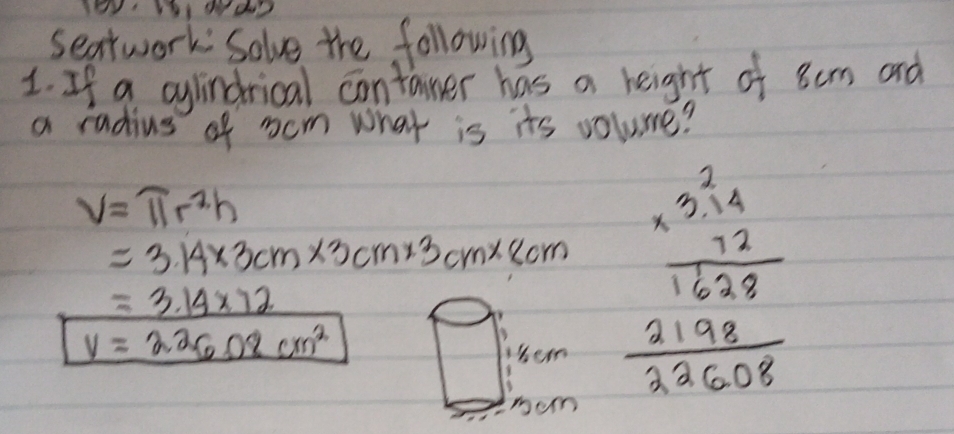 Seatwork: Solve the following
1. If a cylindrical container has a height of 8cm and
a radius of 3cm what is its volume?
V = πr²h
= 3.14 × 3cm × 3cm × 3cm × 8cm
= 3.14 × 72
V = 226.08 cm²
2
3.14
× 72
1628
2198
226.08
8cm
3cm